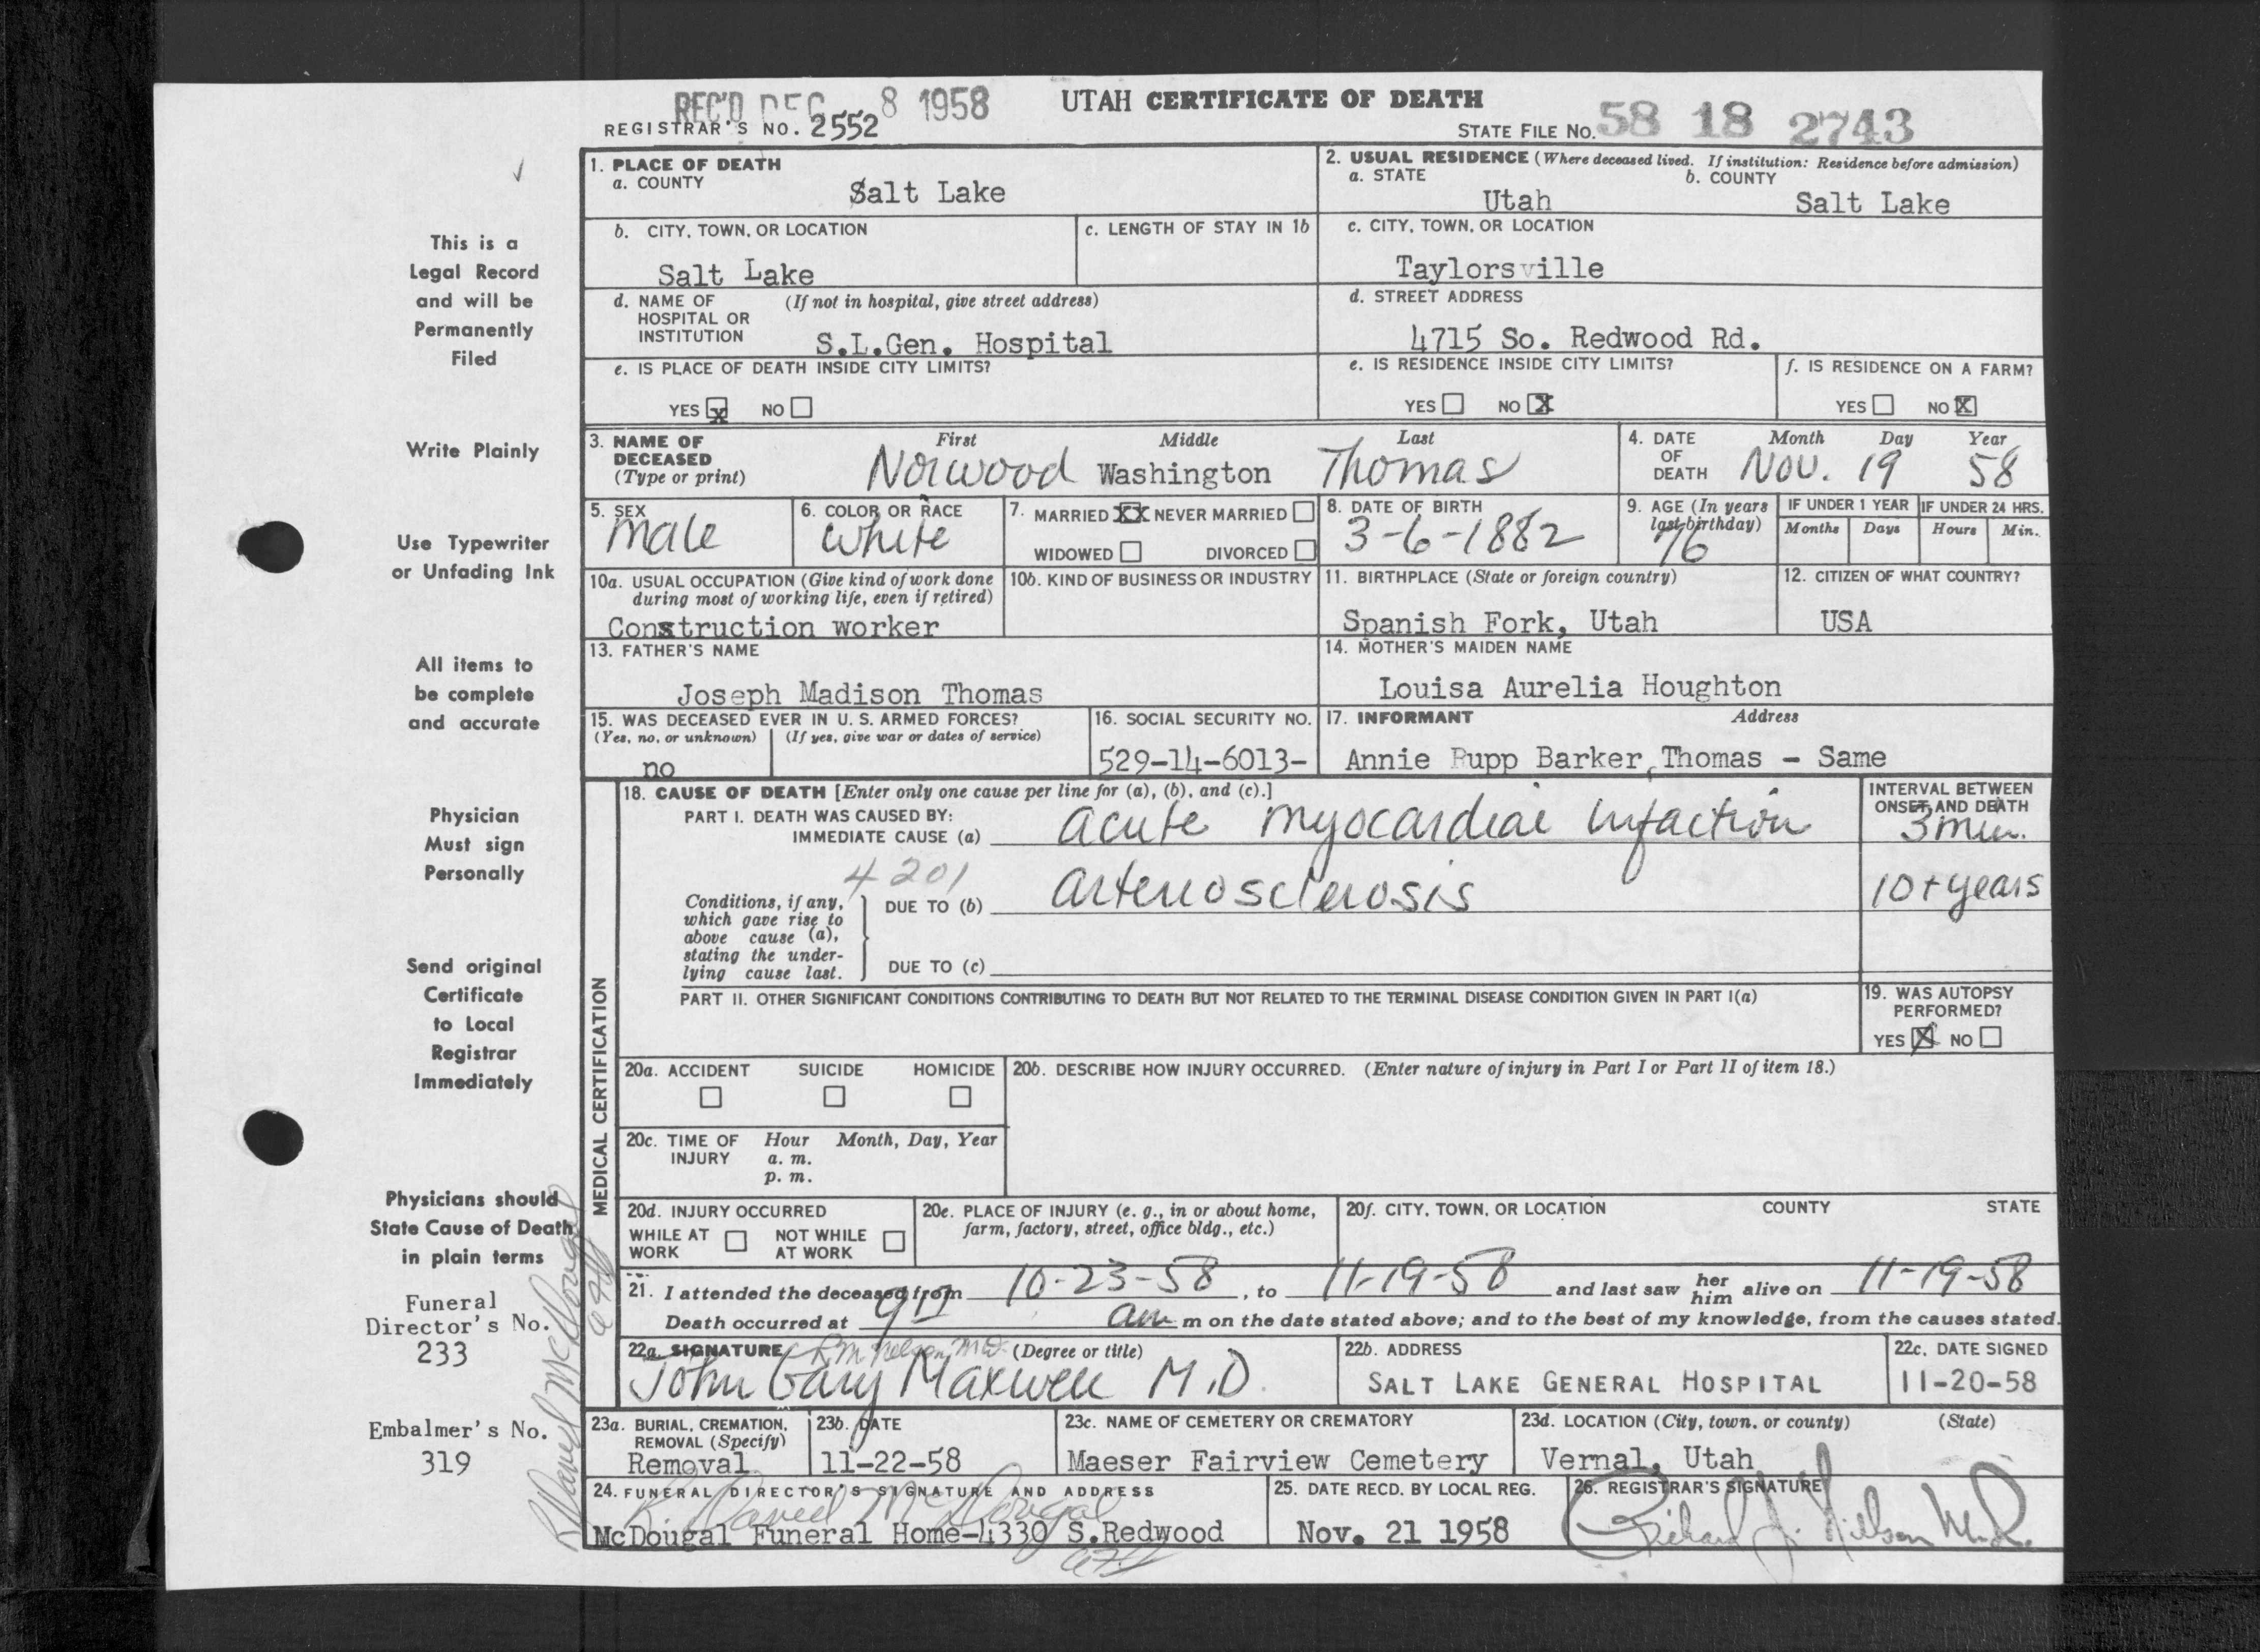 REC'D DEC 8 1958
UTAH CERTIFICATE OF DEATH
REGISTRAR'S NO. 2552
STATE FILE NO. 58 18 2743
This is a
Legal Record
and will be
Permanently
Filed
Write Plainly
Use Typewriter
or Unfading Ink
All items to
be complete
and accurate
Physician
Must sign
Personally
Send original
Certificate
to Local
Registrar
Immediately
Physicians should
State Cause of Death
in plain terms
Funeral
Director's No.
233
Embalmer's No.
319
1. PLACE OF DEATH
a. COUNTY
Salt Lake
2. USUAL RESIDENCE (Where deceased lived. If institution: Residence before admission)
a. STATE b. COUNTY
Utah Salt Lake
b. CITY, TOWN, OR LOCATION
Salt Lake
c. LENGTH OF STAY IN 1b
c. CITY, TOWN, OR LOCATION
Taylorsville
d. NAME OF (If not in hospital, give street address)
HOSPITAL OR
INSTITUTION S.L.Gen. Hospital
d. STREET ADDRESS
4715 So. Redwood Rd.
e. IS PLACE OF DEATH INSIDE CITY LIMITS?
YES X NO
e. IS RESIDENCE INSIDE CITY LIMITS?
YES NO X
f. IS RESIDENCE ON A FARM?
YES NO X
3. NAME OF DECEASED (Type or print)
First Middle Last
Norwood Washington Thomas
4. DATE OF DEATH
Month Day Year
Nov. 19 58
5. SEX
male
6. COLOR OR RACE
white
7. MARRIED XX NEVER MARRIED
WIDOWED DIVORCED
8. DATE OF BIRTH
3-6-1882
9. AGE (In years last birthday)
76
IF UNDER 1 YEAR
Months Days
IF UNDER 24 HRS.
Hours Min.
10a. USUAL OCCUPATION (Give kind of work done
during most of working life, even if retired)
Construction worker
10b. KIND OF BUSINESS OR INDUSTRY
11. BIRTHPLACE (State or foreign country)
Spanish Fork, Utah
12. CITIZEN OF WHAT COUNTRY?
USA
13. FATHER'S NAME
Joseph Madison Thomas
14. MOTHER'S MAIDEN NAME
Louisa Aurelia Houghton
15. WAS DECEASED EVER IN U. S. ARMED FORCES?
(Yes, no, or unknown) (If yes, give war or dates of service)
no
16. SOCIAL SECURITY NO.
529-14-6013-
17. INFORMANT Address
Annie Rupp Barker, Thomas - Same
MEDICAL CERTIFICATION
18. CAUSE OF DEATH [Enter only one cause per line for (a), (b), and (c).]
PART I. DEATH WAS CAUSED BY:
IMMEDIATE CAUSE (a) acute myocardial infaction
INTERVAL BETWEEN
ONSET AND DEATH
3 min.
4201
Conditions, if any,
which gave rise to
above cause (a),
stating the under-
lying cause last.
DUE TO (b) arteriosclerosis
10+ years
DUE TO (c)
PART II. OTHER SIGNIFICANT CONDITIONS CONTRIBUTING TO DEATH BUT NOT RELATED TO THE TERMINAL DISEASE CONDITION GIVEN IN PART I(a)
19. WAS AUTOPSY
PERFORMED?
YES X NO
20a. ACCIDENT SUICIDE HOMICIDE
20b. DESCRIBE HOW INJURY OCCURRED. (Enter nature of injury in Part I or Part II of item 18.)
20c. TIME OF INJURY
Hour Month, Day, Year
a. m.
p. m.
20d. INJURY OCCURRED
WHILE AT WORK NOT WHILE AT WORK
20e. PLACE OF INJURY (e. g., in or about home,
farm, factory, street, office bldg., etc.)
20f. CITY, TOWN, OR LOCATION COUNTY STATE
21. I attended the deceased from 10-23-58, to 11-19-58 and last saw her him alive on 11-19-58
Death occurred at am m on the date stated above; and to the best of my knowledge, from the causes stated.
22a. SIGNATURE (Degree or title)
R.M. Nelson, M.D.
John Gary Maxwell M.D.
22b. ADDRESS
SALT LAKE GENERAL HOSPITAL
22c. DATE SIGNED
11-20-58
23a. BURIAL, CREMATION,
REMOVAL (Specify)
Removal
23b. DATE
11-22-58
23c. NAME OF CEMETERY OR CREMATORY
Maeser Fairview Cemetery
23d. LOCATION (City, town, or county) (State)
Vernal, Utah
24. FUNERAL DIRECTOR'S SIGNATURE AND ADDRESS
R. David McDougal
McDougal Funeral Home-4330 S.Redwood
25. DATE RECD. BY LOCAL REG.
Nov. 21 1958
26. REGISTRAR'S SIGNATURE
Richard J. Nielson M.D.
R David McDougal